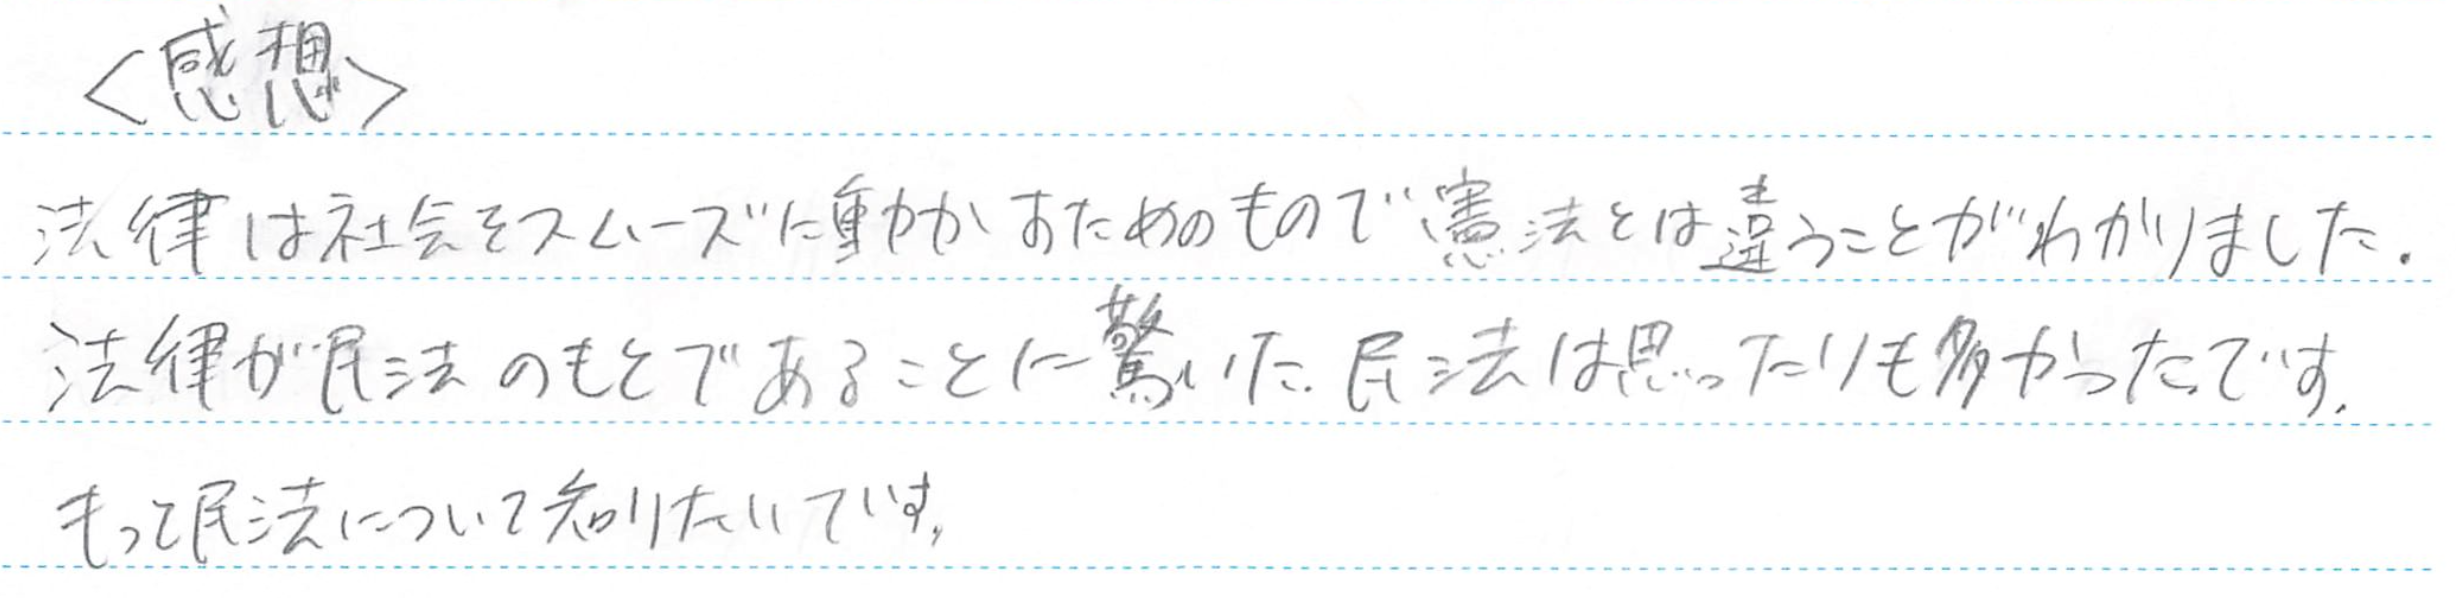 <感想>
法律は社会をスムーズに動かすためのもので憲法とは違うことがわかりました.
法律が民法のもとであることに驚いた.民法は思ったりも多かったです.
もって民法について知りたいです.